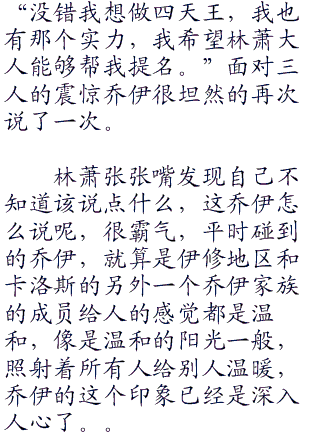 “没错我想做四天王，我也
有那个实力，我希望林萧大
人能够帮我提名。”面对三
人的震惊乔伊很坦然的再次
说了一次。
林萧张张嘴发现自己不
知道该说点什么，这乔伊怎
么说呢，很霸气，平时碰到
的乔伊，就算是伊修地区和
卡洛斯的另外一个乔伊家族
的成员给人的感觉都是温
和，像是温和的阳光一般，
照射着所有人给别人温暖，
乔伊的这个印象已经是深入
人心了。。